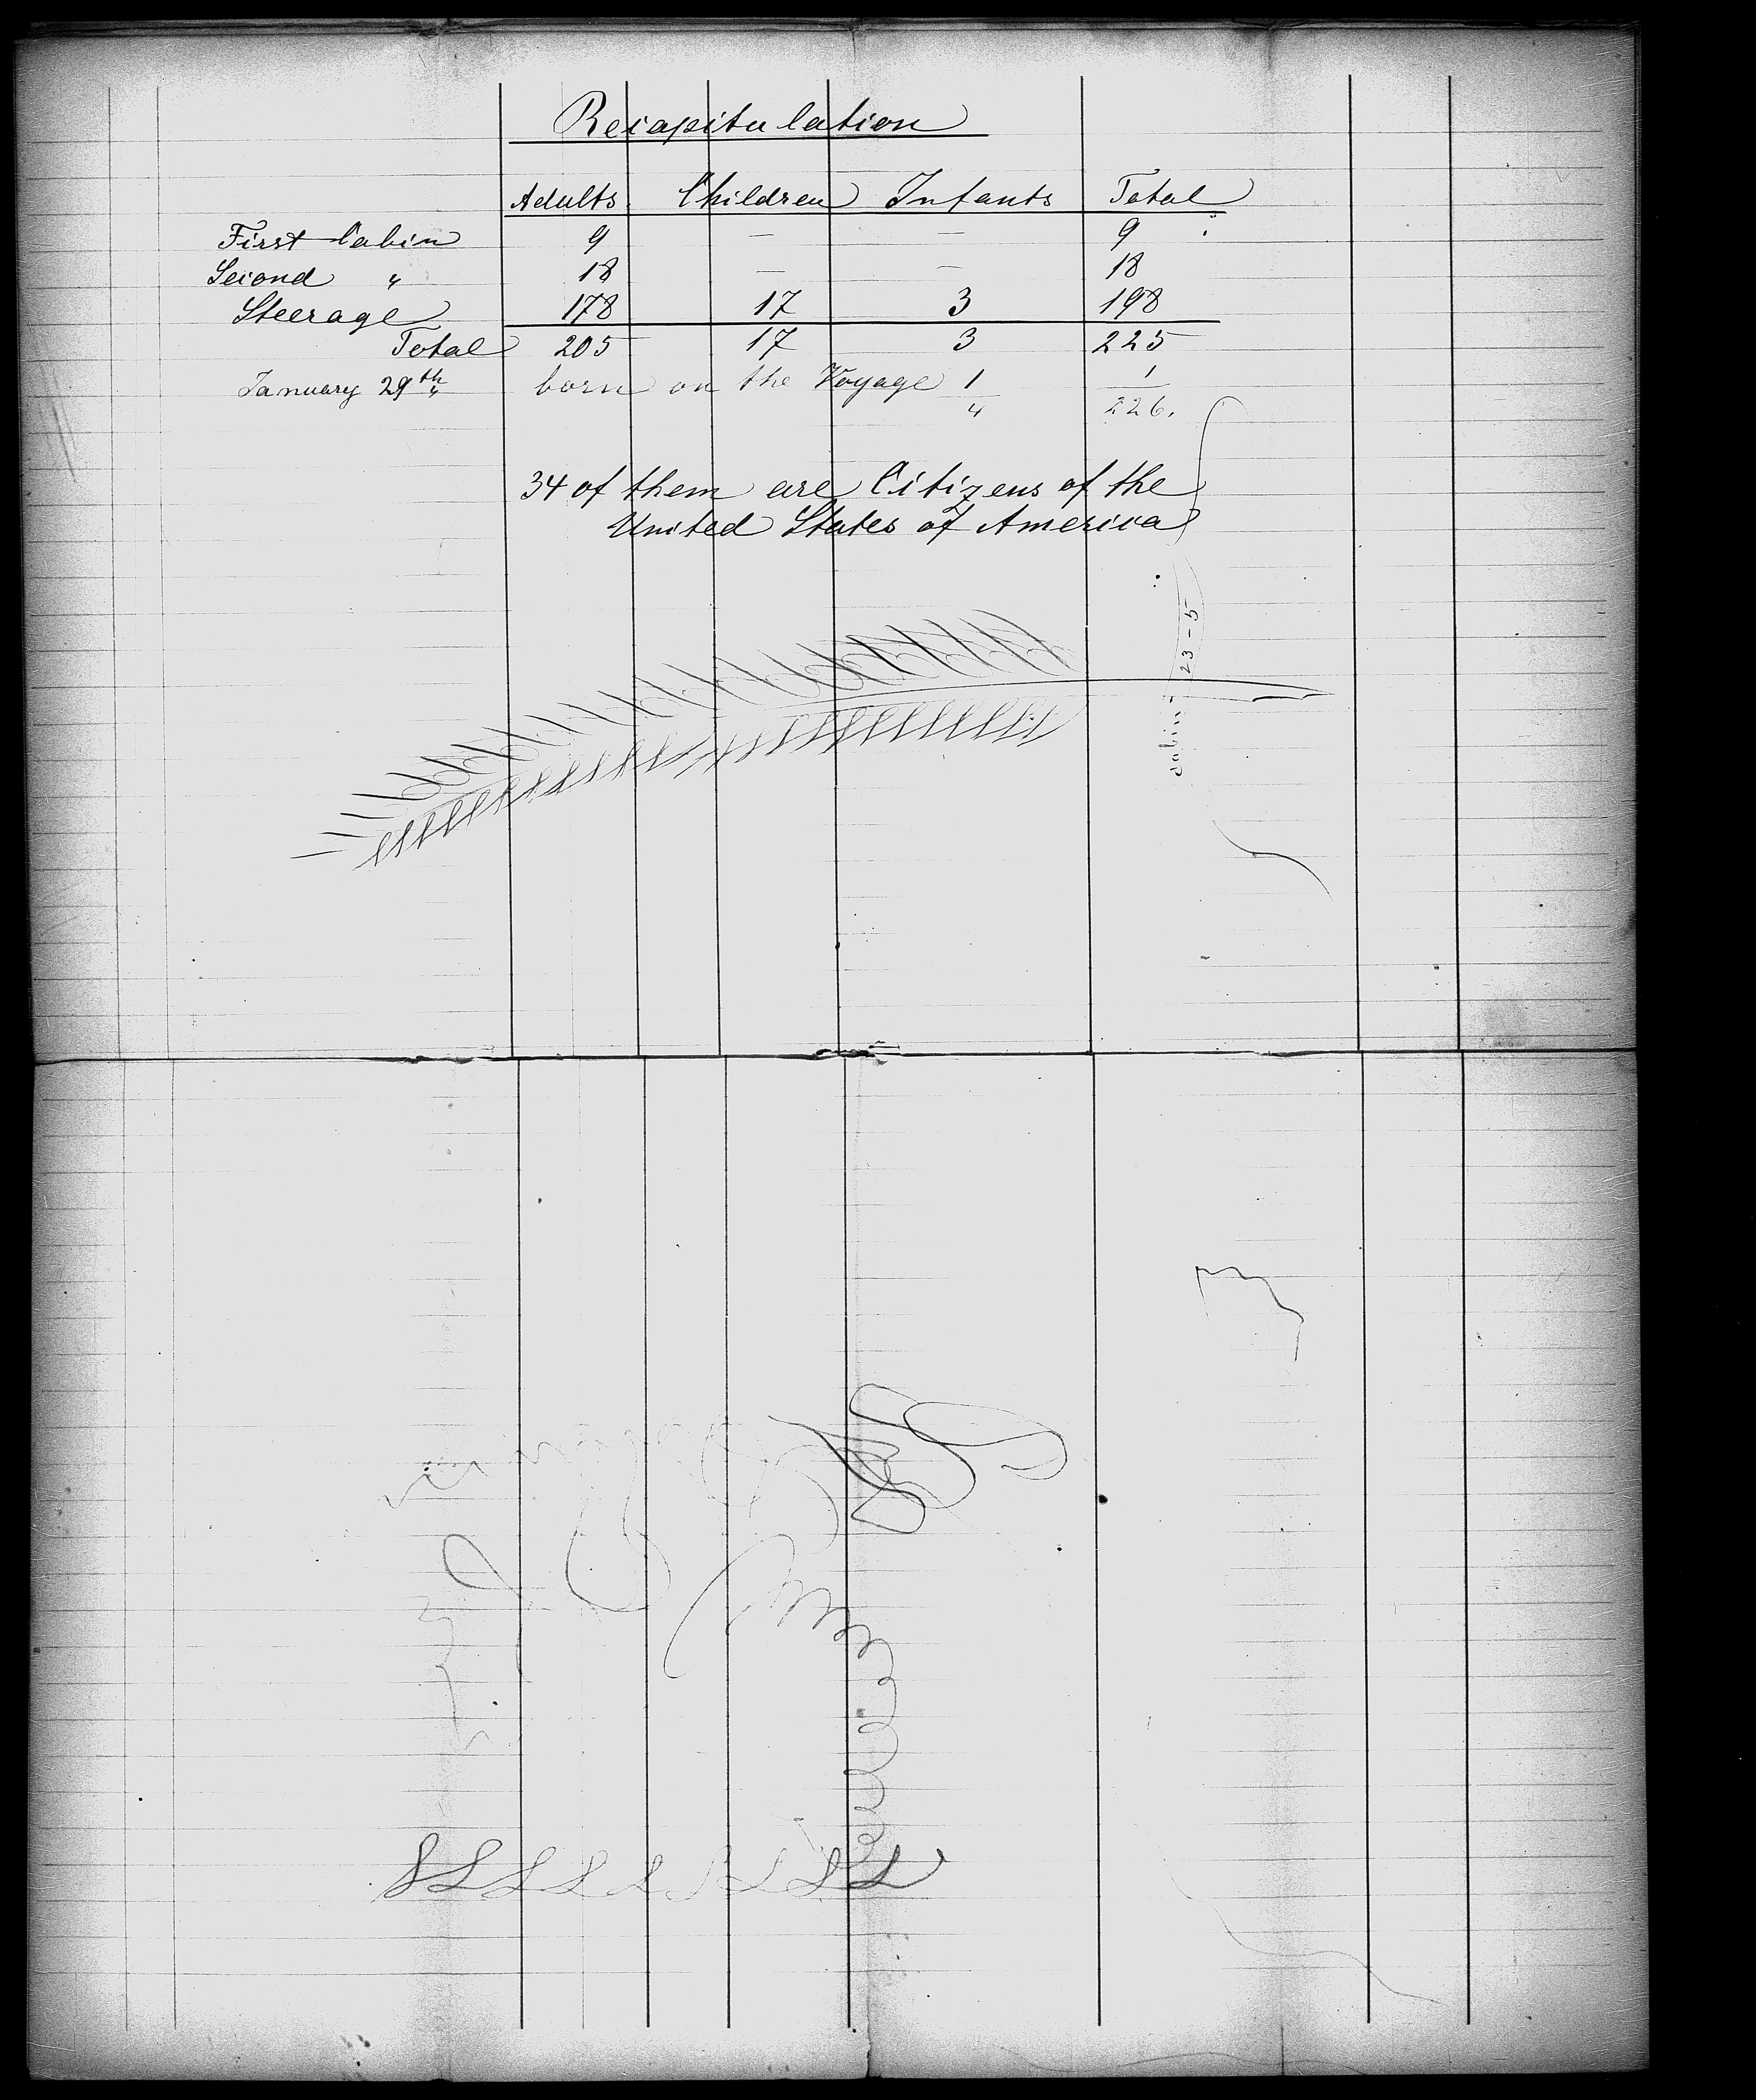 Recapitulation
Adults Children Infants Total
First Cabin 9 — — 9
Second " 18 — — 18
Steerage 178 17 3 198
Total 205 17 3 225
January 29th born on the Voyage 1 1
4 226.
34 of them are Citizens of the
United States of America
Cabin - 23-5